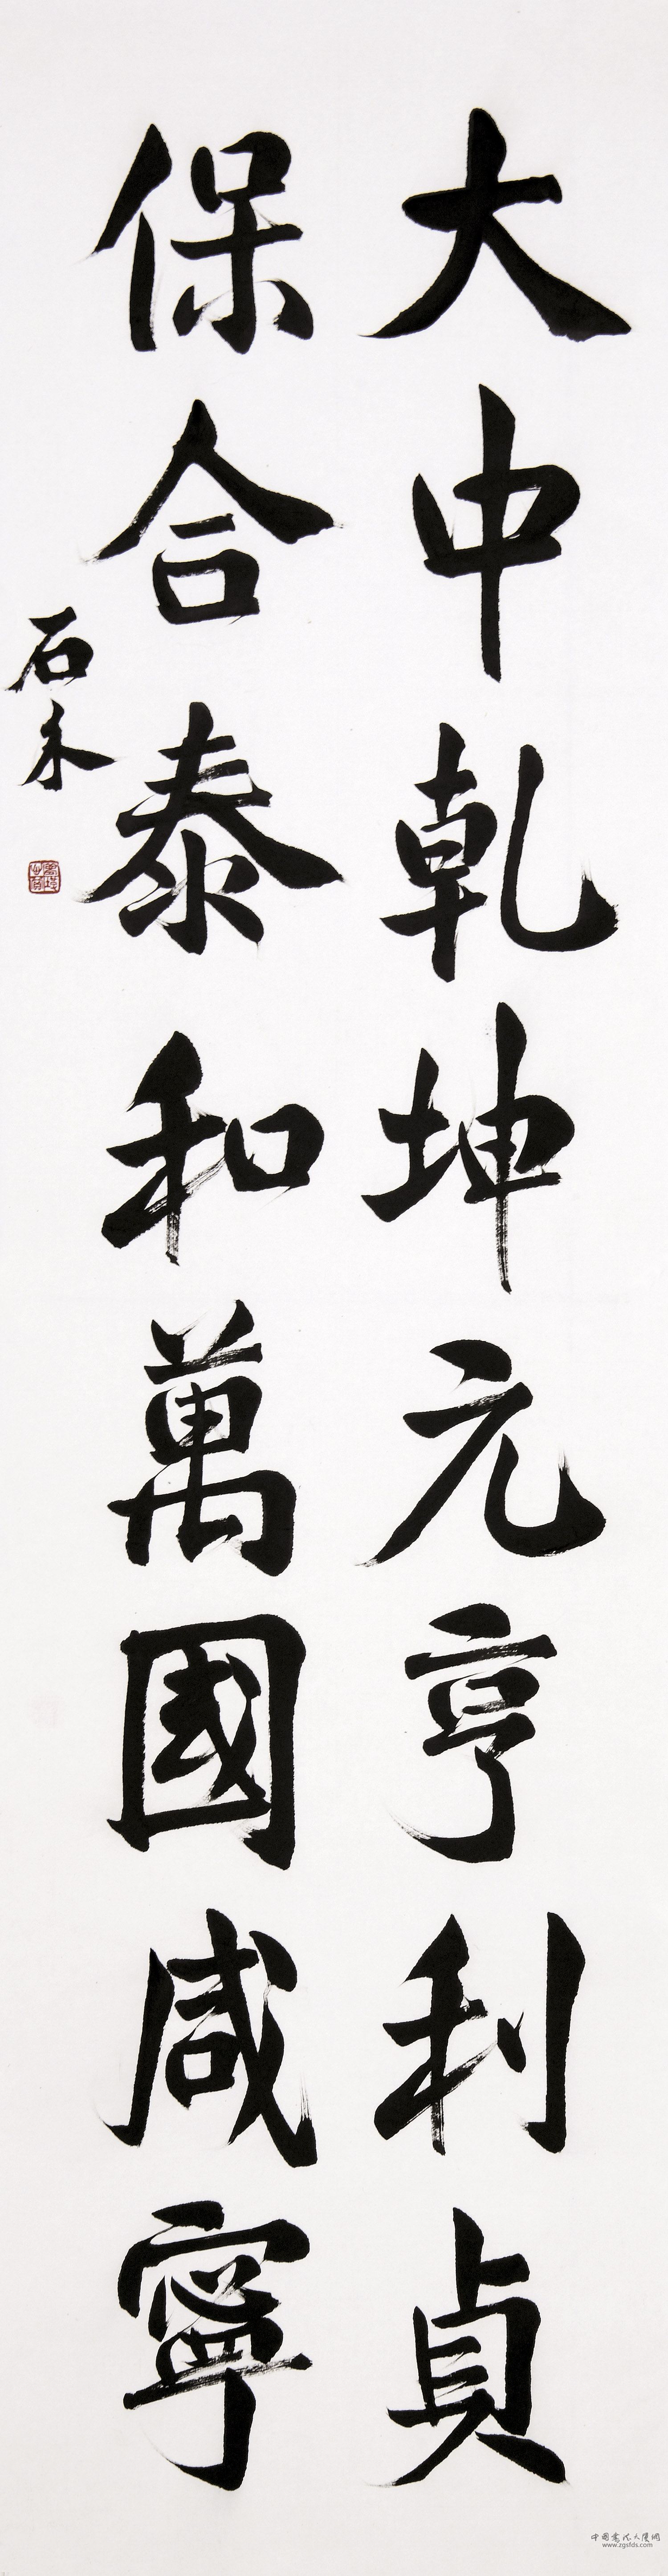 大中乾坤元亨利貞
保合泰和萬國咸寧
石永
中國書法大廈網
www.zgsfds.com